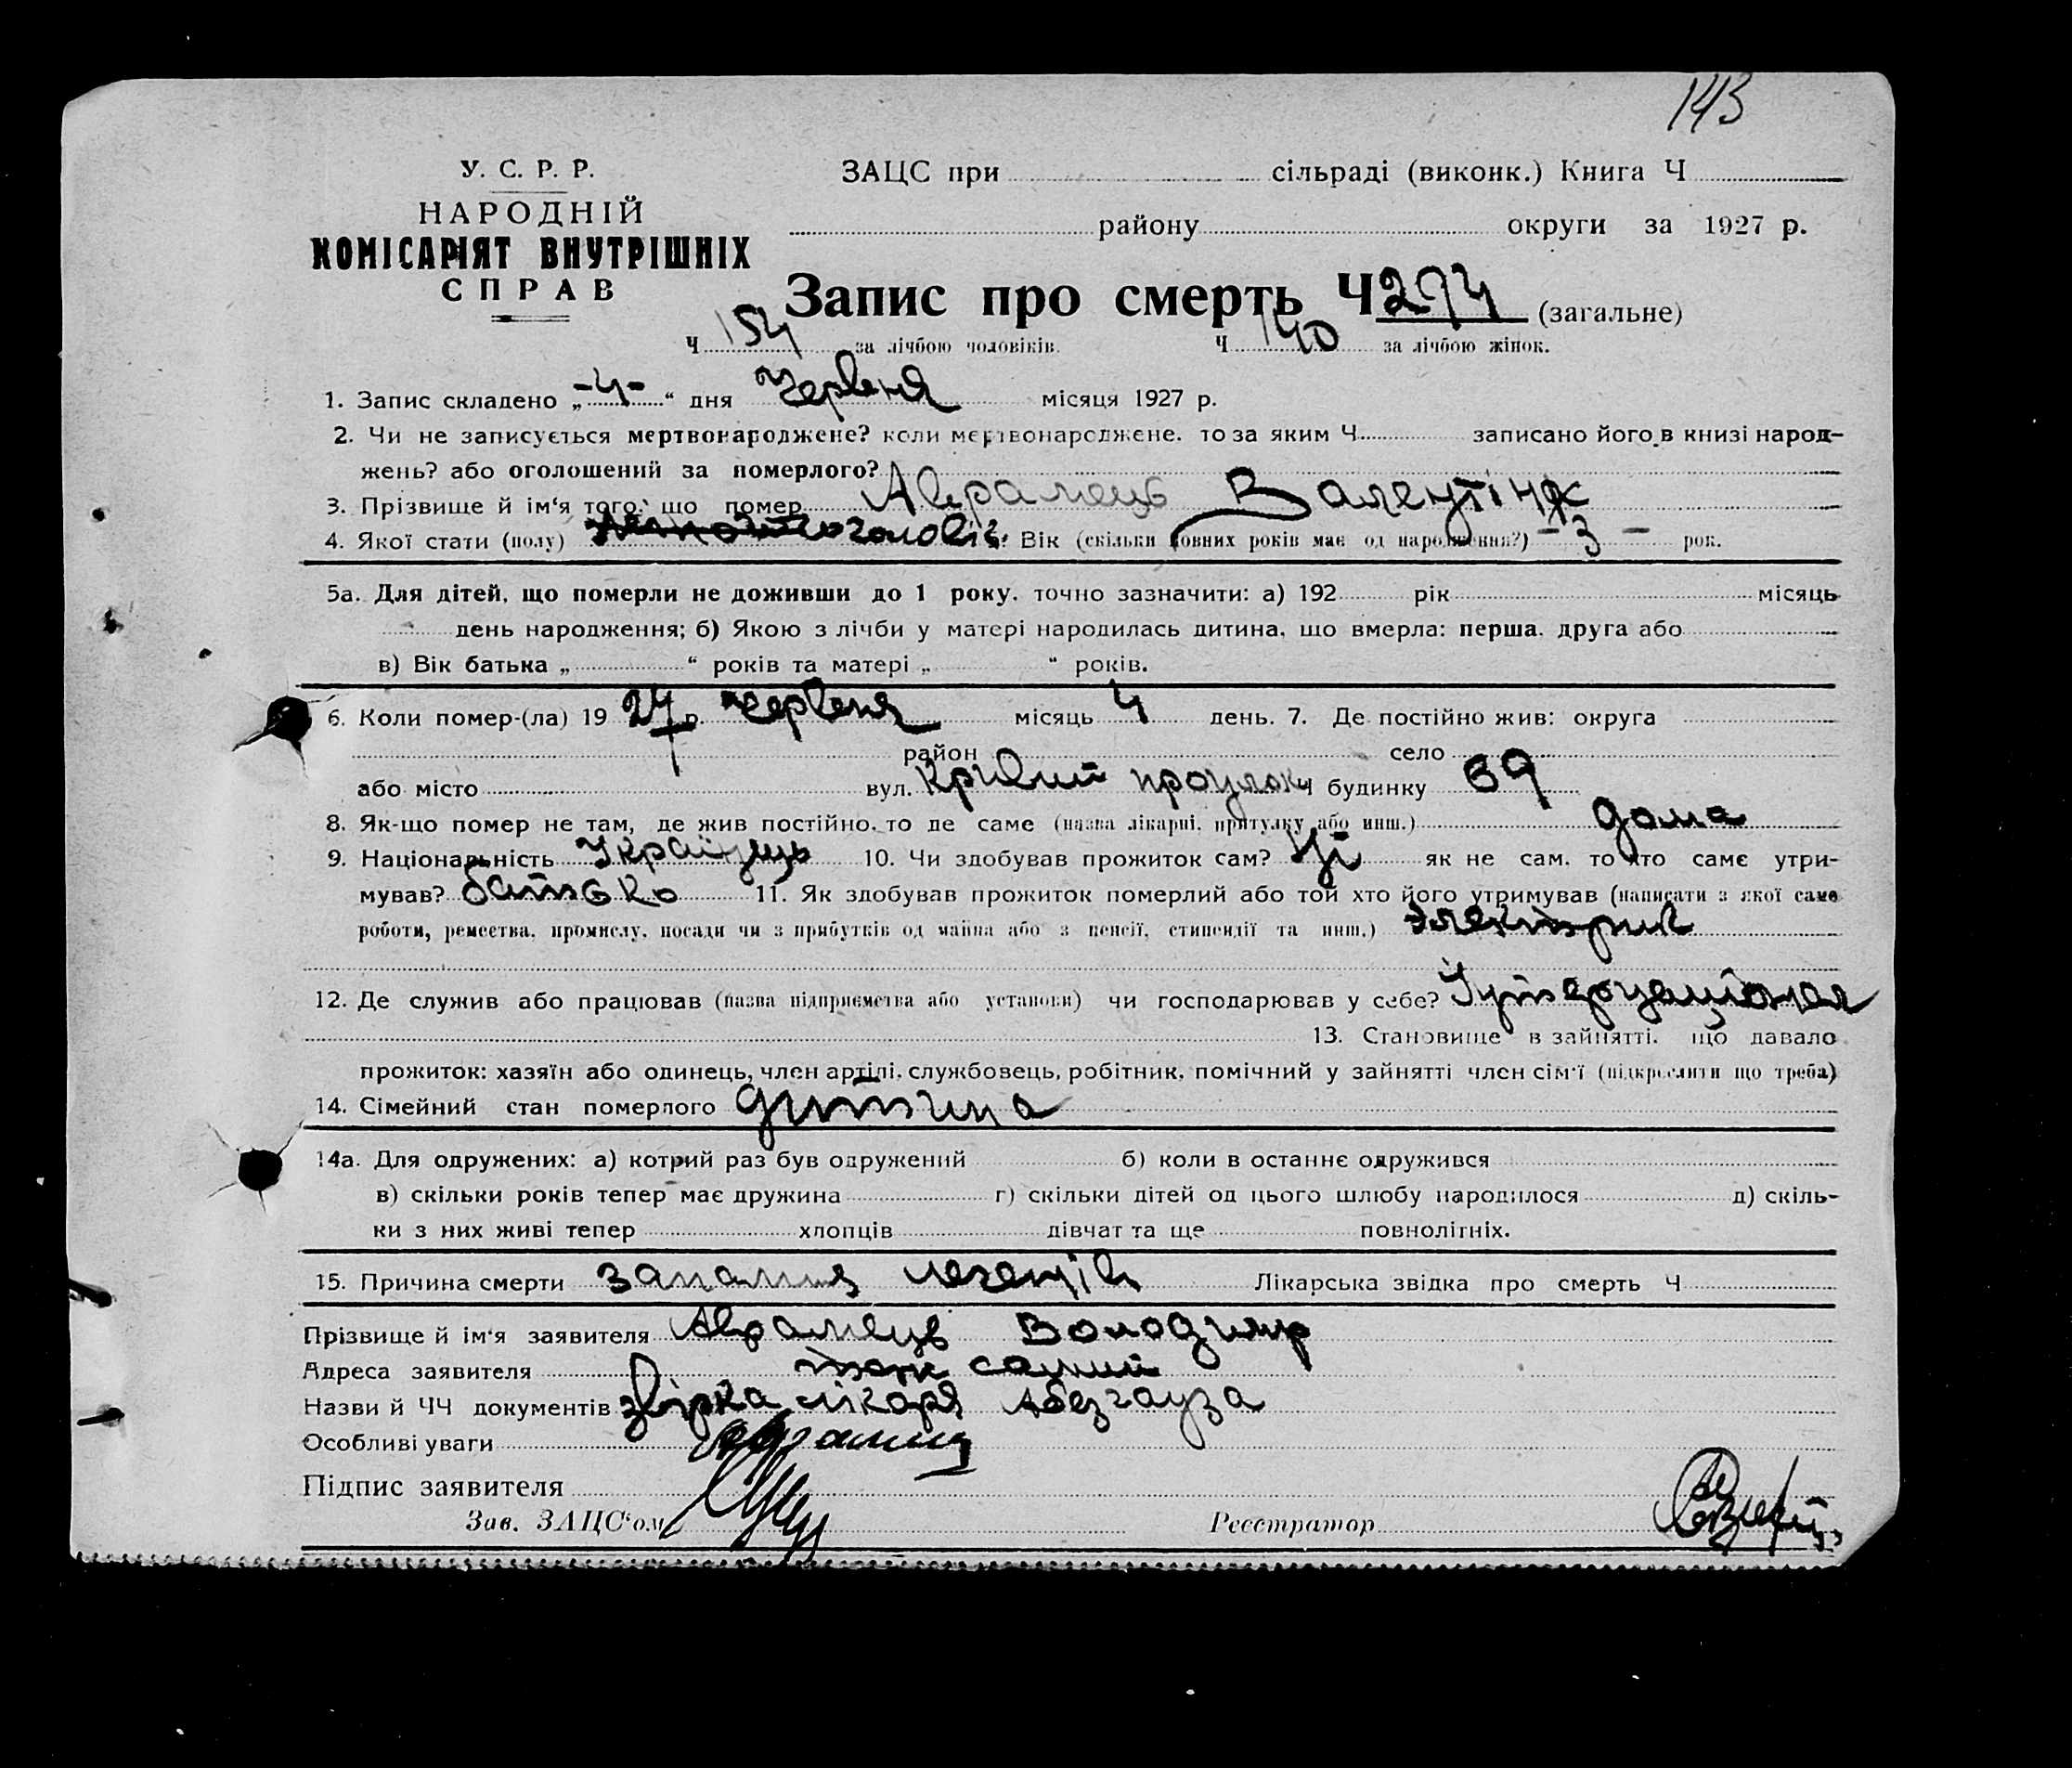 143
У. С. Р. Р.
НАРОДНІЙ
КОМІСАРІЯТ ВНУТРІШНІХ
СПРАВ
ЗАЦС при сільраді (виконк.) Книга Ч
району округи за 1927 р.
Запис про смерть Ч 294 (загальне)
Ч 154 за лічбою чоловіків. Ч 140 за лічбою жінок.
1. Запис складено „-4-“ дня Червня місяця 1927 р.
2. Чи не записується мертвонароджене? коли мертвонароджене, то за яким Ч записано його в книзі народ-
жень? або оголошений за померлого?
3. Прізвище й ім‘я того, що помер Аврамець Валентін
4. Якої стати (полу) чоловіч. Вік (скільки повних років має од народження?) - 3 - рок.
5а. Для дітей, що померли не доживши до 1 року, точно зазначити: а) 192 рік місяць
день народження; б) Якою з лічби у матері народилась дитина, що вмерла: перша, друга або
в) Вік батька „ “ років та матері „ “ років.
6. Коли помер-(ла) 19 27 р. червня місяць 4 день. 7. Де постійно жив: округа
район село
або місто вул. Кривий проулок Ч будинку 69
8. Як-що помер не там, де жив постійно, то де саме (назва лікарні, притулку або инш.) дома
9. Національність Українець 10. Чи здобував прожиток сам? Ні як не сам, то хто саме утри-
мував? батько 11. Як здобував прожиток померлий або той хто його утримував (написати з якої саме
роботи, ремества, промислу, посади чи з прибутків од майна або з пенсії, стипендії та инш.) Электрик
12. Де служив або працював (назва підприємства або установи) чи господарював у себе?
13. Становище в зайнятті, що давало
прожиток: хазяїн або одинець, член артілі, службовець, робітник, помічний у зайнятті член сім‘ї (підкреслити що треба)
14. Сімейний стан померлого дитина
14а. Для одружених: а) котрий раз був одружений б) коли в останнє одружився
в) скільки років тепер має дружина г) скільки дітей од цього шлюбу народилося д) скіль-
ки з них живі тепер хлопців дівчат та ще повнолітніх.
15. Причина смерти запалння легенів Лікарська звідка про смерть Ч
Прізвище й ім‘я заявителя Аврамець Володимир
Адреса заявителя той самий
Назви й ЧЧ документів лікаря Абезгауза
Особливі уваги
Підпис заявителя
Зав. ЗАЦС‘ом Реєстратор